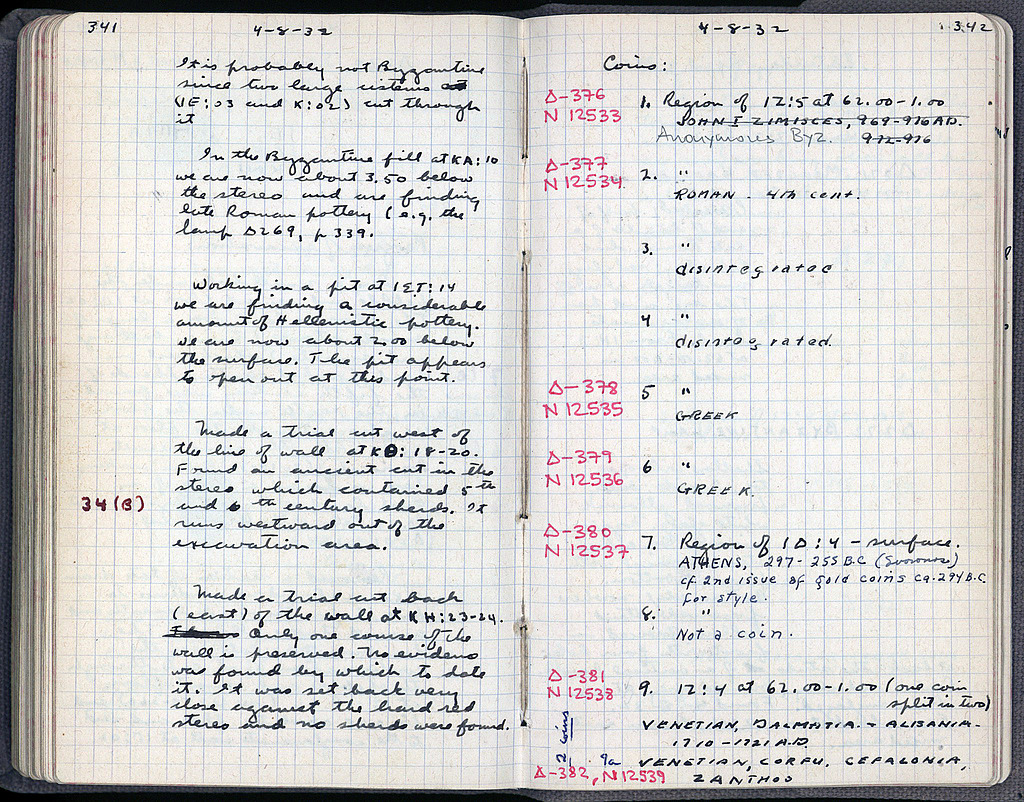 341
4-8-32
It is probably not Byzantine
since two large cisterns
(IE:03 and K:02) cut through
it
In the Byzantine fill at KA:10
we are now about 3.50 below
the stereo and are finding
late Roman pottery (e.g. the
lamp Δ269, p 339.
Working in a pit at IΣT:14
we are finding a considerable
amount of Hellenistic pottery.
We are now about 2.00 below
the surface. The pit appears
to open out at this point.
Made a trial cut west of
the line of wall at KΘ:18-20.
Found an ancient cut in the
stereo which contained 5th
34(B)
and 6th century sherds. It
runs westward out of the
excavation area.
Made a trial cut back
(east) of the wall at KH:23-24.
Only one course of the
wall is preserved. No evidence
was found by which to date
it. It was set back very
close against the hard red
stereo and no sherds were found.
4-8-32
342
Coins:
Δ-376
N 12533
1. Region of 12:5 at 62.00-1.00
JOHN I ZIMISCES, 969-976 AD.
Anonymous Byz. 972-976
Δ-377
N 12534
2. "
ROMAN - 4th cent.
3. "
disintegrated
4 "
disintegrated.
Δ-378
N 12535
5 "
GREEK
Δ-379
N 12536
6 "
GREEK.
Δ-380
N 12537
7. Region of 1Δ:4 - surface.
ATHENS, 297-255 B.C (Svoronos)
cf 2nd issue of gold coins ca. 294 B.C.
for style.
8. "
Not a coin.
Δ-381
N 12538
9. 12:4 at 62.00-1.00 (one coin
split in two)
VENETIAN, DALMATIA - ALBANIA-
1710-1721 A.D.
2 coins
9a VENETIAN, CORFU, CEFALONIA,
Δ-382, N 12539
ZANTHOS